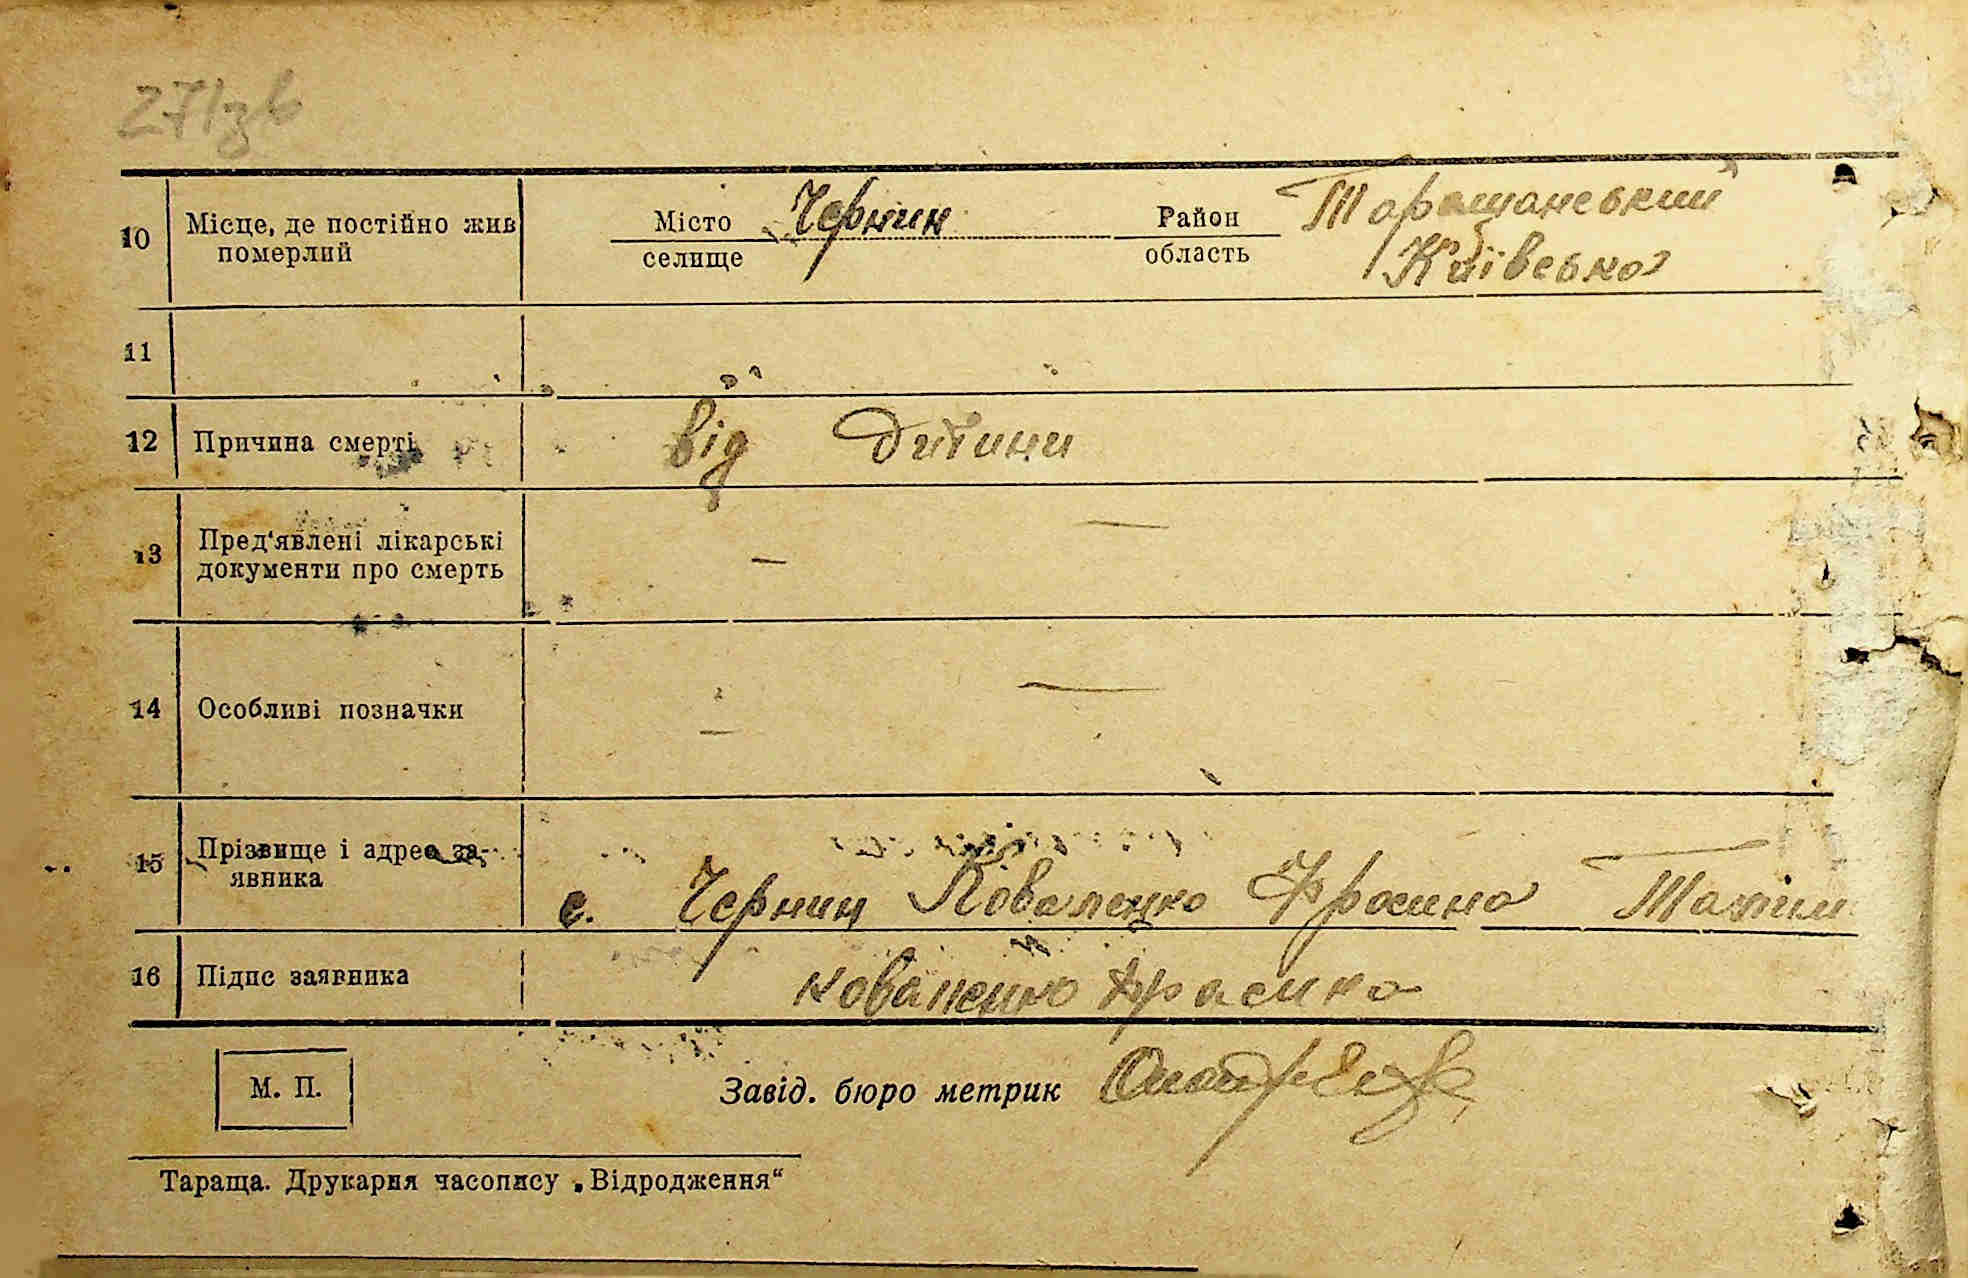 271зв
10 Місце, де постійно жив Місто Чернин Район Таращанський
померлий селище область Київсько
11
12 Причина смерті від дитини
13 Пред'явлені лікарські
документи про смерть — —
14 Особливі позначки — —
15 Прізвище і адрес за-
явника с. Чернин Коваленко Фросина
16 Підпс заявника коваленко фросина
М. П. Завід. бюро метрик
Тараща. Друкарня часопису „Відродження“